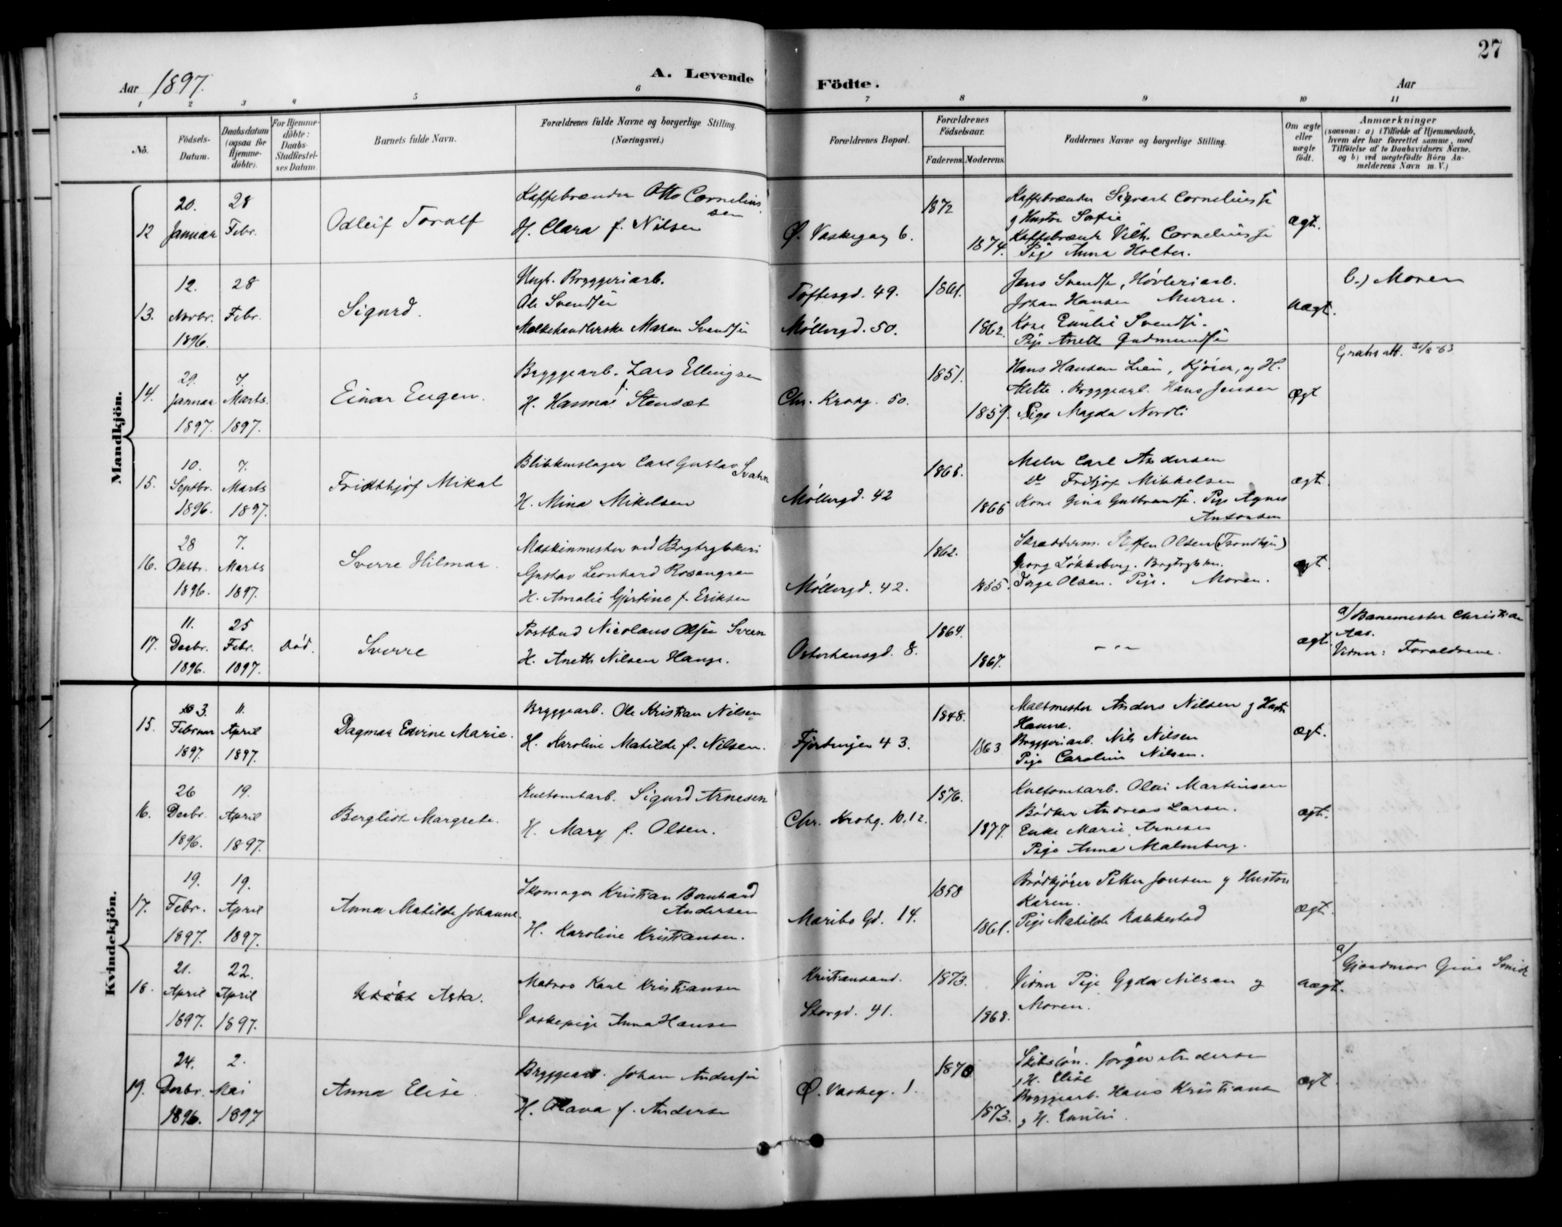 27
Aar 1897.
A. Levende
Födte.
Aar
1 2 3 4 5 6 7 8 9 10 11
No.
Födsels-
Datum.
Daabsdatum
(ogsaa for
Hjemme-
döbte).
For Hjemme-
döbte:
Daabs-
Stadfæstel-
ses Datum.
Barnets fulde Navn.
Forældrenes fulde Navne og borgerlige Stilling
(Næringsvei.)
Forældrenes Bopæl.
Forældrenes
Födselsaar.
Faderens. Moderens.
Faddernes Navne og borgerlige Stilling.
Om ægte
eller
uægte
födt.
Anmærkninger
(saasom: a) i Tilfælde af Hjemmedaab,
hvem der har forrettet samme, med
Tilföielse af to Daabsvidners Navne,
og b) ved uægtefödte Börn An-
melderens Navn m. V.)
Mandkjön.
12
20.
Januar
28
Febr.
Odleif Toralf
Kaffebrænder Otto Cornelius
sen
H. Clara f. Nilsen
Ø. Vaskegang 6.
1872
1874.
Kaffebrænder Sigvart Cornelius
g Hustru Sofie
Kaffebrænd. Vilh. Cornelius
Pige Anna Holter.
ægt.
13.
12.
Novbr.
1896.
28
Febr.
Sigurd.
Ungk. Bryggeriarb.
Ole Svendsen
Melkehandlerske Maren Svendsen
Toftesgd. 49.
Møllergd. 50.
1861.
1862.
Jens Svendsen, Høvleriarb.
Johan Hansen Murer.
Kone Emilie Svendsen.
Pige Anette Gudmundsen
uægt.
b.) Moren
14.
29.
Januar
1897.
7.
Marts
1897.
Einar Eugen.
Bryggearb. Lars Ellingsen
H. Hanna f. Stensæt
Chr. Krohg. 50.
1851.
1859.
Hans Hansen Lien, Kjører, og H.
Mette. Bryggearb. Hans Jensen
Pige Magda Nordli
Ægt
Gratis att.
15.
10.
Septbr.
1896.
7.
Marts
1897.
Fridthjof Mikal
Blikkenslager Carl Gustav Svahn
H. Mina Mikelsen
Møllergd. 42
1865.
1865
Maler Carl Andersen
do Fritjof Mikkelsen
Kone Gina Gulbrandsen. Pige Agnes
Antonsen
ægt.
16.
28
Oktbr.
1896.
7.
Marts
1897.
Sverre Hilmar.
Maskinmester ved Bogtrykkeri
Gustav Leonhard Rosengren
H. Amalie Gjertine f. Eriksen
Møllergd. 42.
1862.
1855.
Skrædderm. Steffen Olsen (Trondhjem)
Georg Løkkeberg. Bogtrykker.
Inga Olsen. Pige. Moren.
ægt
17.
11.
Decbr.
1896.
25
Febr.
1897.
Død.
Sverre
Postbud Nicolaus Olsen Sveen
H. Anette Nilsen Hange.
Osterhausgd. 8.
1864.
1867.
- " -
ægt.
a/ Banemester Christian
Aas.
Vidner: Forældrene.
Kvindekjön.
15.
3.
Februar
1897.
11.
April
1897.
Dagmar Edvine Marie.
Bryggearb. Ole Kristian Nilsen
H. Karoline Matilde f. Nilsen.
Fjerdingen 43.
1848.
1863
Maltmester Anders Nilsen g Hustr.
Hanna.
Bryggeriarb. Nils Nilsen
Pige Caroline Nilsen.
ægt.
16.
26
Decbr.
1896.
19.
April
1897.
Bergliot Margrete.
Kultomtarb. Sigurd Arnesen
H. Mary f. Olsen.
Chr. Krohg. 10.12.
1876.
1877.
Kultomtarb. Olai Martinsen
Bødker Andreas Larsen.
Enke Marie Arnesen
Pige Anna Malmberg.
ægt.
17.
19.
Febr.
1897.
19.
April
1897.
Anna Matilde Johanne.
Skomager Kristian Bernhard
Andersen
H. Karoline Kristiansen.
Maribo Gd. 14.
1858
1861.
Brødkjører Petter Jonsen g Hustru
Karen.
Pige Matilde Kakkestad
ægt.
18.
21.
April
1897.
22.
April
1897.
Udøbt Asta.
Matros Karl Kristiansen
Vaskepige Anna Hansen
Kristiansand.
Storgd. 41.
1873.
1868.
Vidner Pige Gyda Nilsen og
Moren.
uægt.
a/
Gjordmor Gina Smith
19.
24.
Decbr.
1896.
2.
Mai
1897
Anna Elise.
Bryggearb. Johan Andersen
H. Olava f. Andersen
Ø. Vaskeg. 1.
1870
1873.
Skibstøm. Jørgen Andersen
g H. Elise
Bryggearb. Hans Kristians
g H. Emilie.
ægt